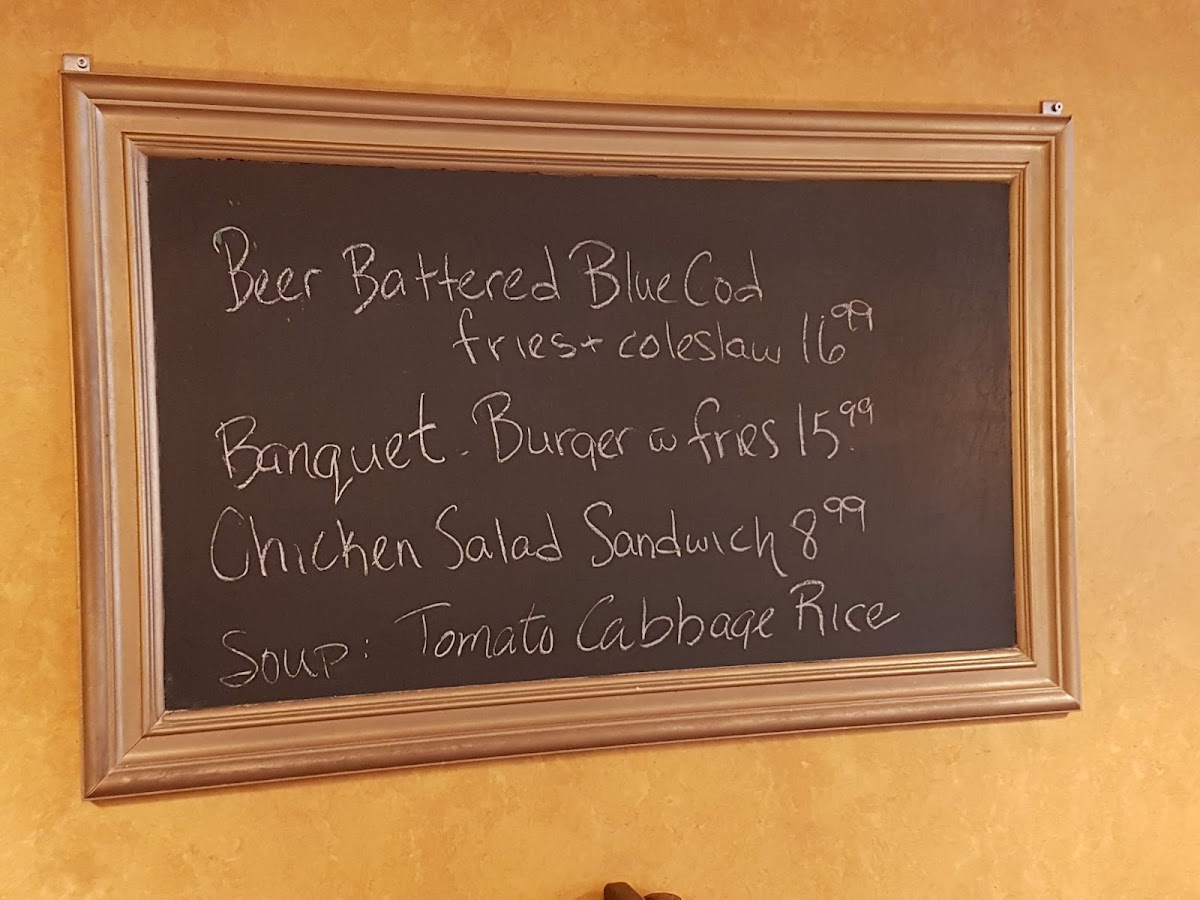 Beer Battered Blue Cod
fries + coleslaw 16 99
Banquet - Burger w fries 15.99
Chicken Salad Sandwich 8 99
Soup: Tomato Cabbage Rice